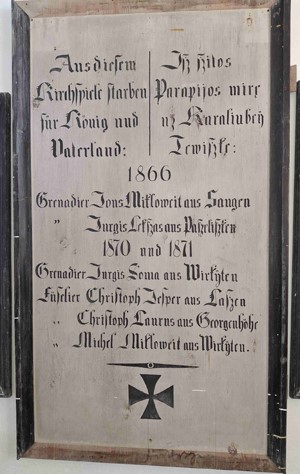 Aus diesem
Kirchspiele starben
für König und
Vaterland:
Isz szitos
Parapijos mire
uz Karaliu bey
Tewiszke:
1866
Grenadier Jons Mikloweit aus Sangen
" Jurgis Lekszas aus Paszelischken
1870 und 1871
Grenadier Jurgis Soma aus Wirkyten
Füselier Christoph Jesper aus Laszen
" Christoph Laurus aus Georgenhöhe
" Michel Mikloweit aus Wirkyten.